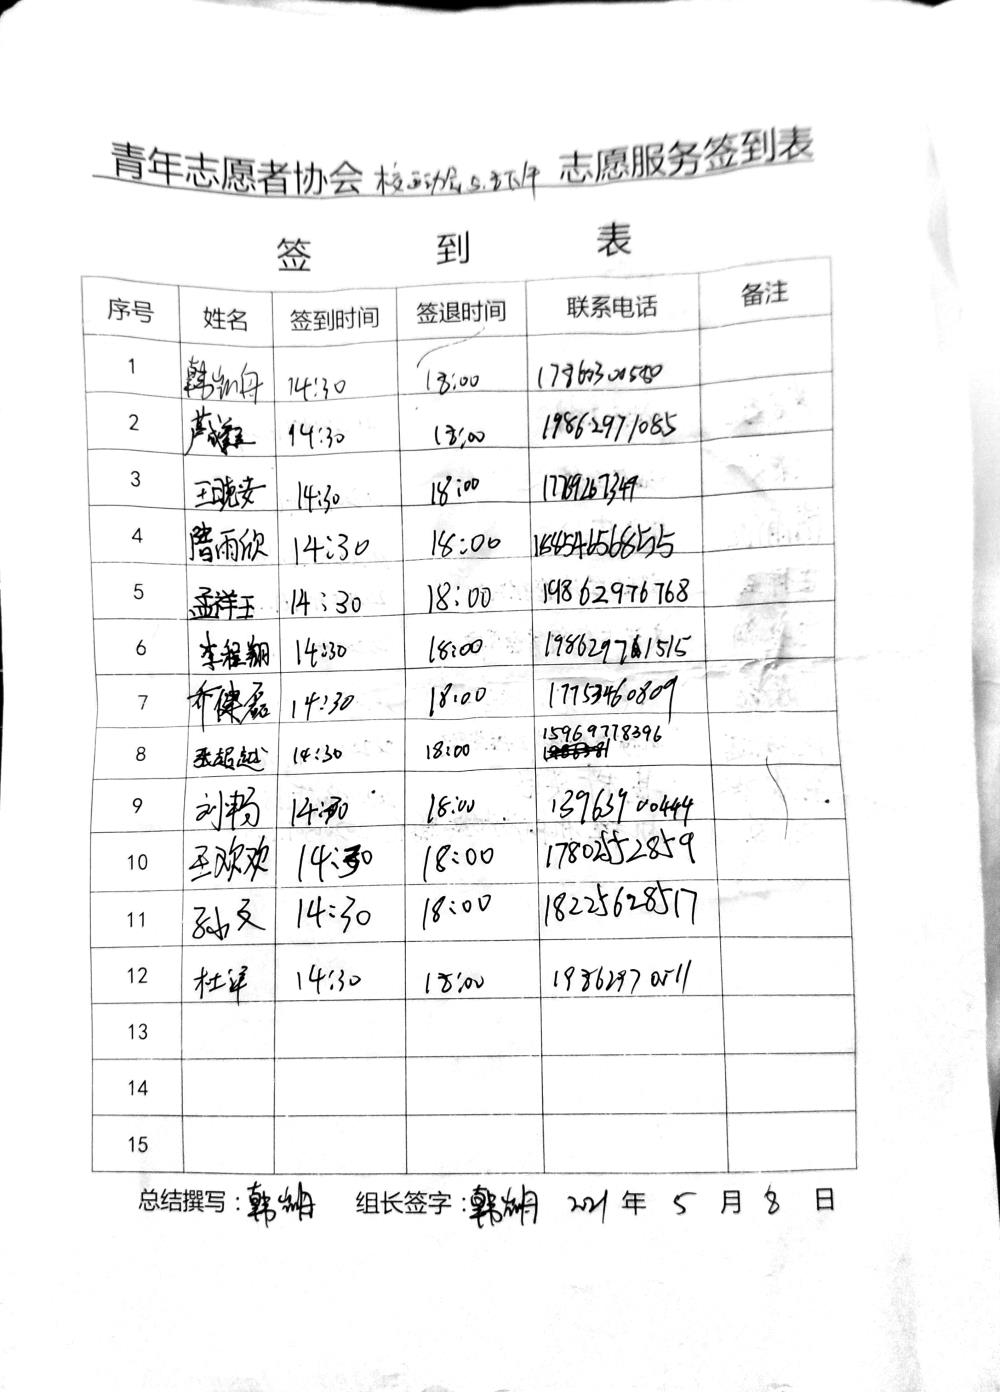 青年志愿者协会 校运动会 5.8下午 志愿服务签到表
签 到 表
序号 姓名 签到时间 签退时间 联系电话 备注
1 14:30 18:00
2 14:30 18:00 19862971085
3 王晓安 14:30 18:00
4 隋雨欣 14:30 18:00
5 孟祥玉 14:30 18:00 19862976768
6 李程翔 14:30 18:00
7 乔健磊 14:30 18:00 17753460809
8 张超越 14:30 18:00 15969778396
9 刘畅 14:30 18:00 13963900444
10 王欢欢 14:30 18:00 17802552859
11 14:30 18:00 18225628517
12 14:30 18:00 19862970511
13
14
15
总结撰写：韩 组长签字：韩 2021 年 5 月 8 日